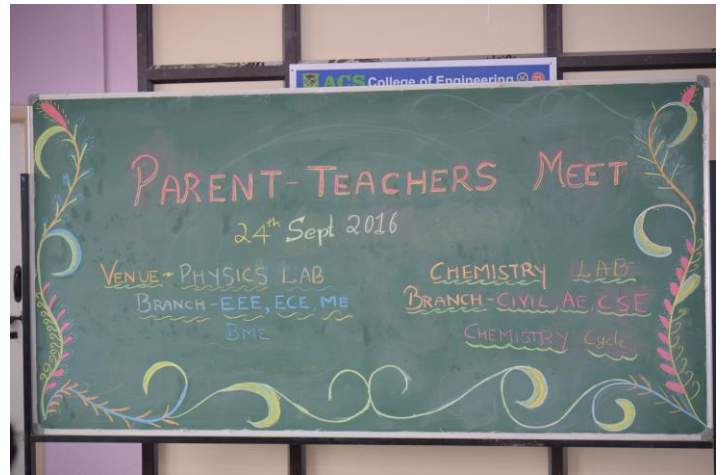 ACS College of Engineering
PARENT-TEACHERS MEET
24th Sept 2016
VENUE - PHYSICS LAB
BRANCH - EEE, ECE, ME
BME
CHEMISTRY LAB
BRANCH - CIVIL, AE, CSE
CHEMISTRY Cycle